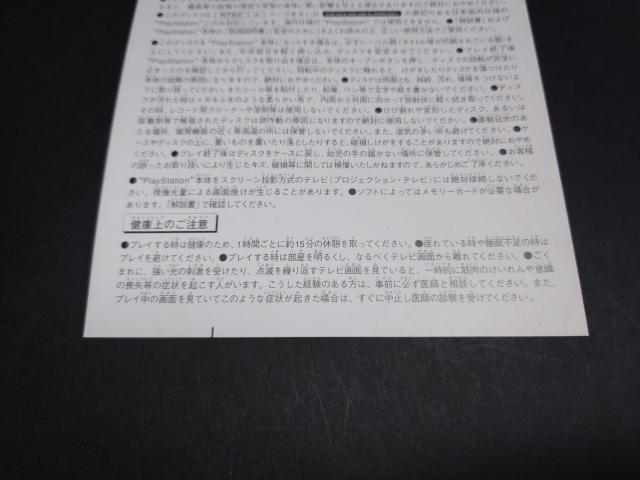 ●このディスクは NTSC J マークあるいは の表記のある日本国内仕様の
"PlayStation"上のみで動作します。海外仕様の"PlayStation"では使用できません。●「解説書」および
"PlayStation"本体の「取扱説明書」「安全のために」をよくお読みの上、正しい使用方法でご使用ください。
●このディスクを"PlayStation"本体にセットする場合は、必ずレーベル面(タイトル等が印刷されている面)を
上にしてください。また、中央部分を軽く押し込み、ディスクを安定させてください。●プレイ終了後
"PlayStation"本体からディスクを取り出す場合は、本体のオープンボタンを押し、ディスクの回転が完全に
止まったのを確認してから行ってください。回転中のディスクに触れると、けがをしたりディスクを傷つけたり
本体の故障の原因になりますので、絶対におやめください。●ディスクは両面とも、指紋、汚れ、傷等をつけないよ
うに取り扱ってください。またシール等を貼付したり、鉛筆、ペン等で文字や絵を書かないでください。●ディス
クが汚れた時はメガネふきのような柔らかい布で、内周から外周に向かって放射状に軽く拭き取ってください。
その時、レコード用クリーナーや溶剤等は使用しないでください。●ひび割れや変形したディスク、あるいは
接着剤等で補修されたディスクは誤作動の原因になりますので絶対に使用しないでください。●直射日光のあ
たる場所、暖房器具の近く等高温の所には保管しないでください。また、湿気の多い所も避けてください。●ケ
ースやディスクの上に、重いものを置いたり落としたりすると、破損しけがをすることがありますので絶対におやめ
ください。●プレイ終了後はディスクをケースに戻し、幼児の手の届かない場所に保管してください。●お客様
の誤ったお取り扱いにより生じたキズ、破損等に関しては補償いたしかねますので、あらかじめご了承ください。
●"PlayStation"本体をスクリーン投影方式のテレビ(プロジェクション・テレビ)には絶対接続しないでくだ
さい。残像光量による画面焼けが生じることがあります。●ソフトによってはメモリーカードが必要な場合が
あります。「解説書」で確認してください。
健康上のご注意
●プレイする時は健康のため、1時間ごとに約15分の休憩を取ってください。●疲れている時や睡眠不足の時は
プレイを避けてください。●プレイする時は部屋を明るくし、なるべくテレビ画面から離れてください。●ごく
まれに、強い光の刺激を受けたり、点滅を繰り返すテレビ画面を見ていると、一時的に筋肉のけいれんや意識
の喪失等の症状を起こす人がいます。こうした経験のある方は、事前に必ず医師と相談してください。また、
プレイ中の画面を見ていてこのような症状が起きた場合は、すぐに中止し医師の診察を受けてください。